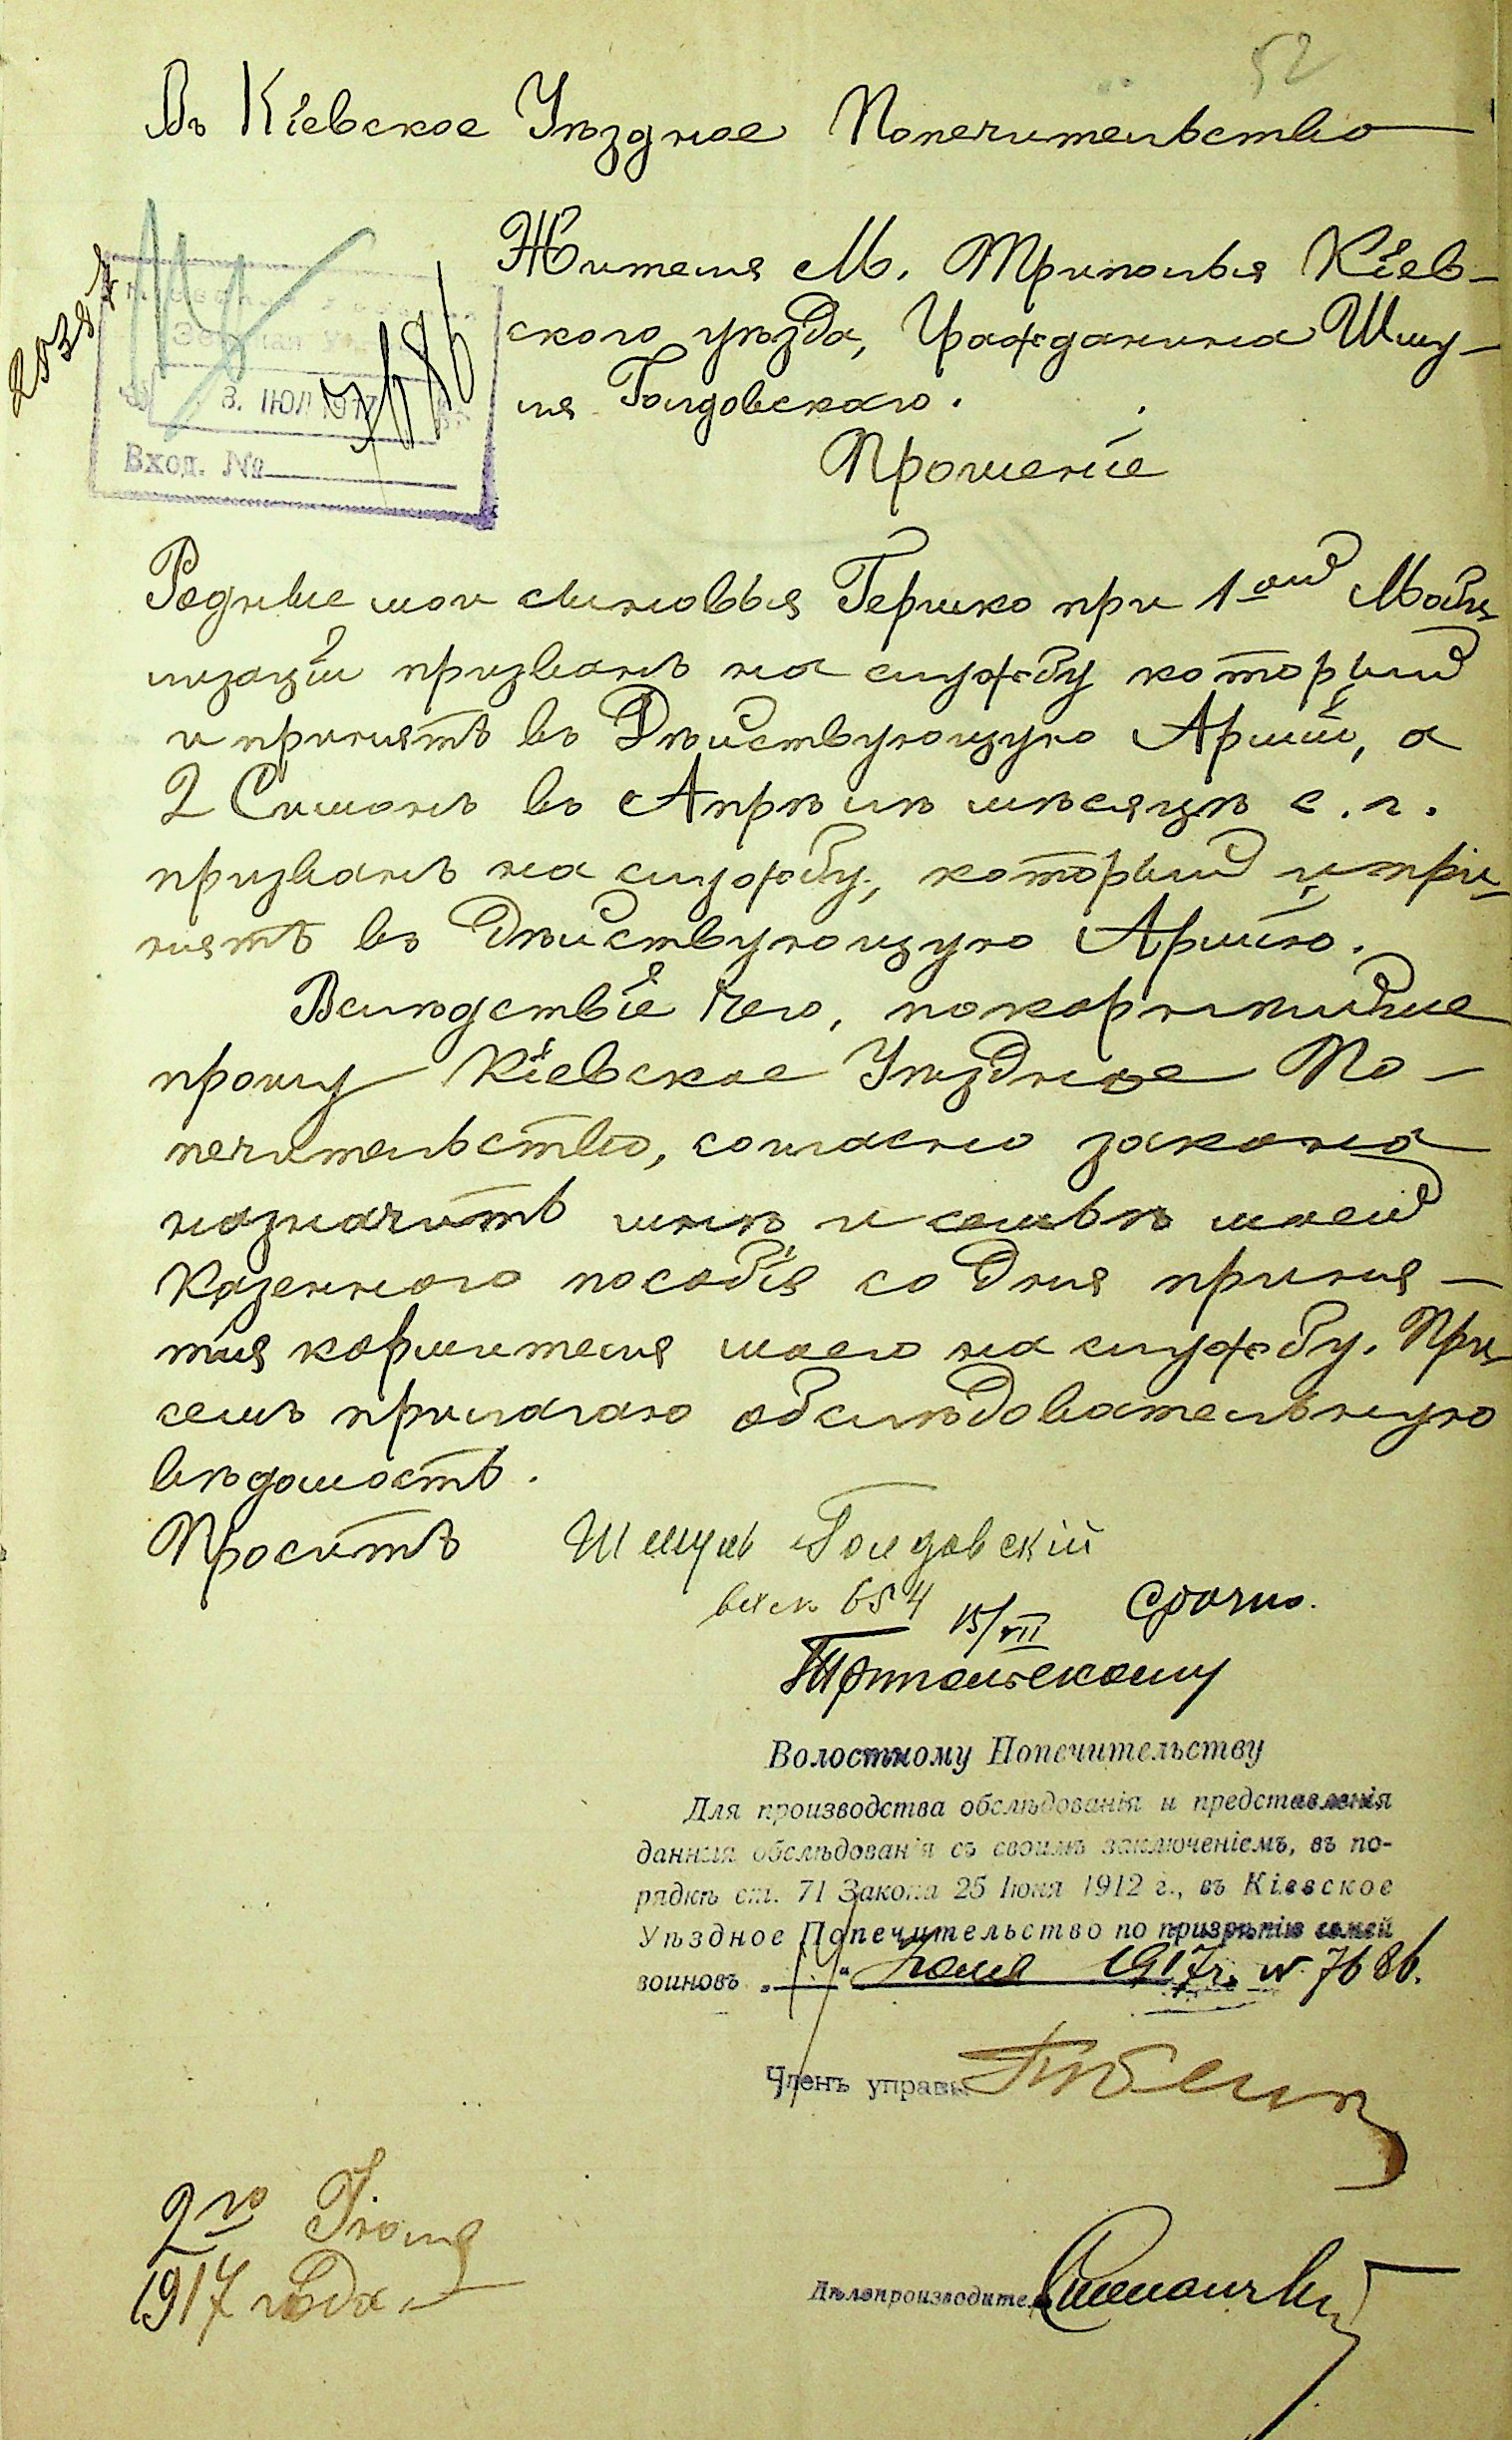 52
Въ Кіевское Уѣздное Попечительство
Жителя М. Триполья Кіев-
ского уѣзда, Гражданина Шму-
ля Голдовскаго.
3. ІЮЛ 1917
7686
Вход. №
Прошеніе
Родные мои сыновья Гершко при 1ой Моби-
лизаціи призванъ на службу который
и принятъ въ Дѣйствующую Армію, а
2 Симонъ въ Апрѣлѣ мѣсяцѣ с. г.
призванъ на службу, который и при-
нятъ въ Дѣйствующую Армію.
Вслѣдствіе чего, покорнѣйше
прошу Кіевское Уѣздное По-
печительство, согласно закона
назначить мнѣ и семьѣ моей
казенного пособія со дня приня-
тия кормителя моего на службу. При
семъ прилагаю обслѣдовательную
вѣдомость.
Проситъ Шмуль Голдовскій
654 15/VII Срочно.
Трипольскому
Волостному Попечительству
Для производства обслѣдованія и представленія
данныя обслѣдованія съ своимъ заключеніемъ, въ по-
рядкѣ ст. 71 Закона 25 Іюня 1912 г., въ Кіевское
Уѣздное Попечительство по призрѣнію семей
воиновъ „14“ Іюля 1917 г. № 7686.
Членъ управы
2го Іюля
1917 года
Дѣлопроизводитель